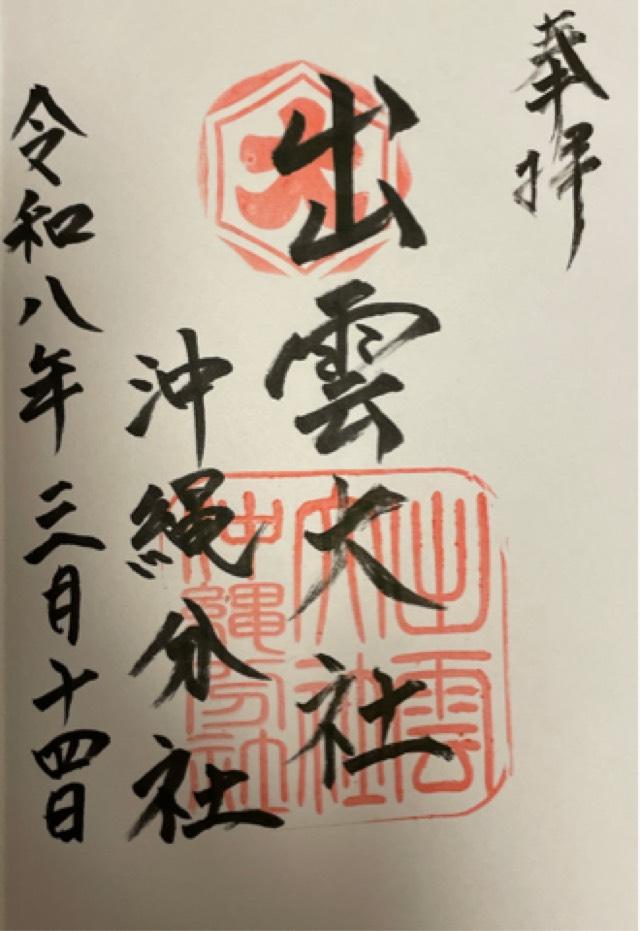 奉拝
出雲大社
沖縄分社
令和八年三月十四日
大
出雲
大社
沖縄分社